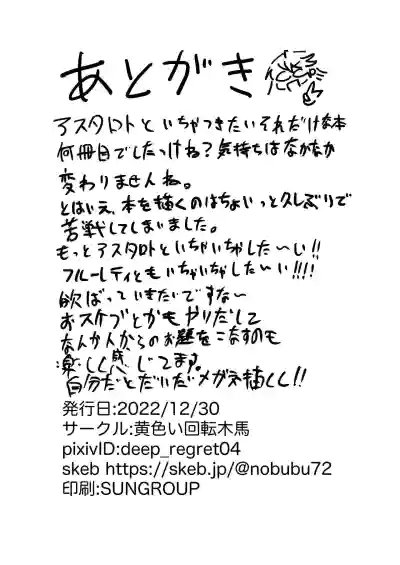 あとがき
アスタロトといちゃつきたいそれだけな本
何冊目でしたっけね?気持ちはなかなか
変わりませんね。
とはいえ、本を描くのはちょいっと久しぶりで
苦戦してしまいました。
もっとアスタロトといちゃいちゃした〜い!!
フルーレティともいちゃいちゃした〜い!!!!
欲ばっていきたいですな〜
おスケブとかもやりだして
なんか人からのお題をこなすのも
楽しく感じてます。
自分だとだいたいメガネ描くし!!
発行日:2022/12/30
サークル:黄色い回転木馬
pixivID:deep_regret04
skeb https://skeb.jp/@nobubu72
印刷:SUNGROUP